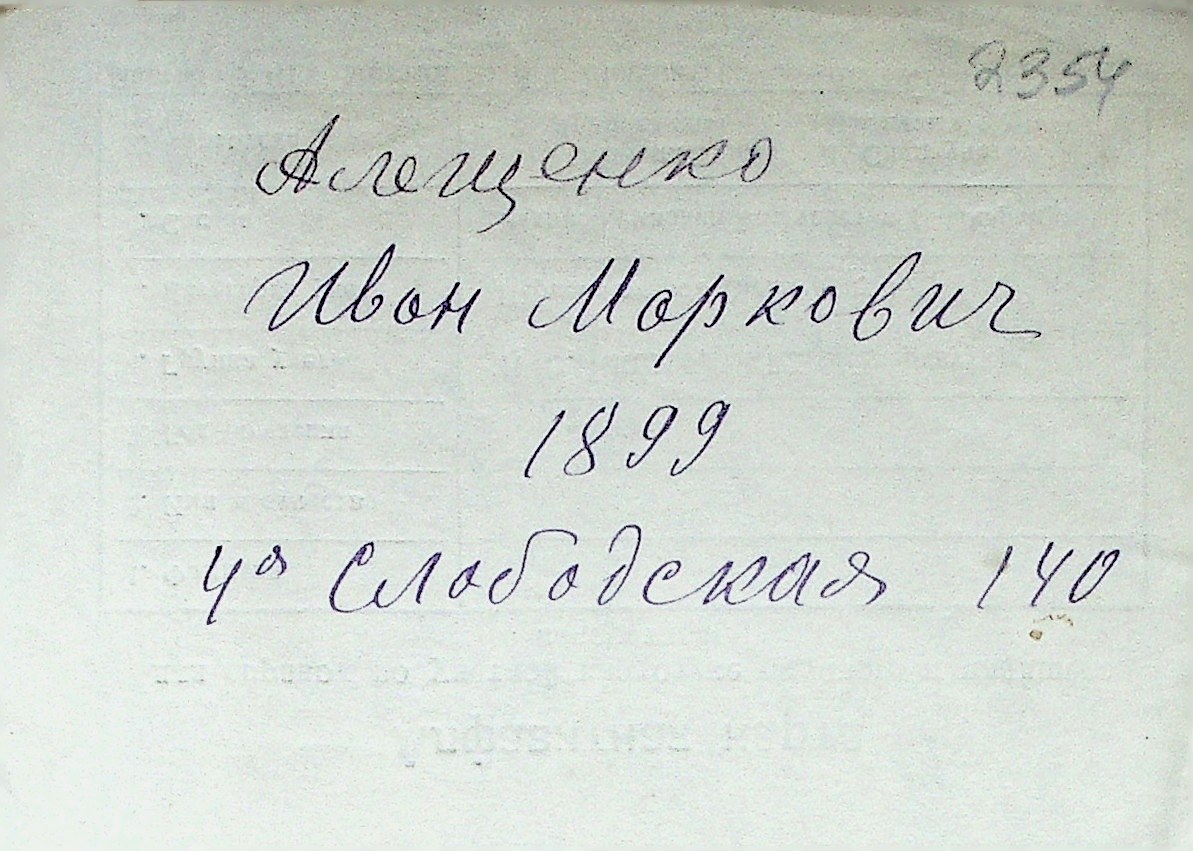 2354
Алещенко
Иван Маркович
1899
4я Слободская 140